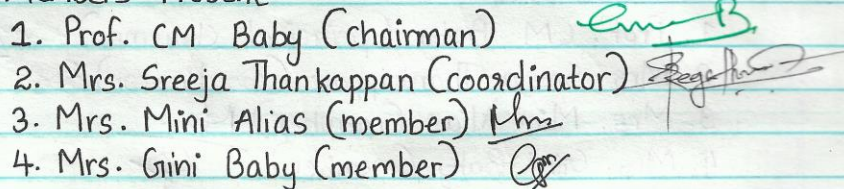 Members Present
1. Prof. CM Baby (chairman)
2. Mrs. Sreeja Thankappan (coordinator)
3. Mrs. Mini Alias (member)
4. Mrs. Gini Baby (member)